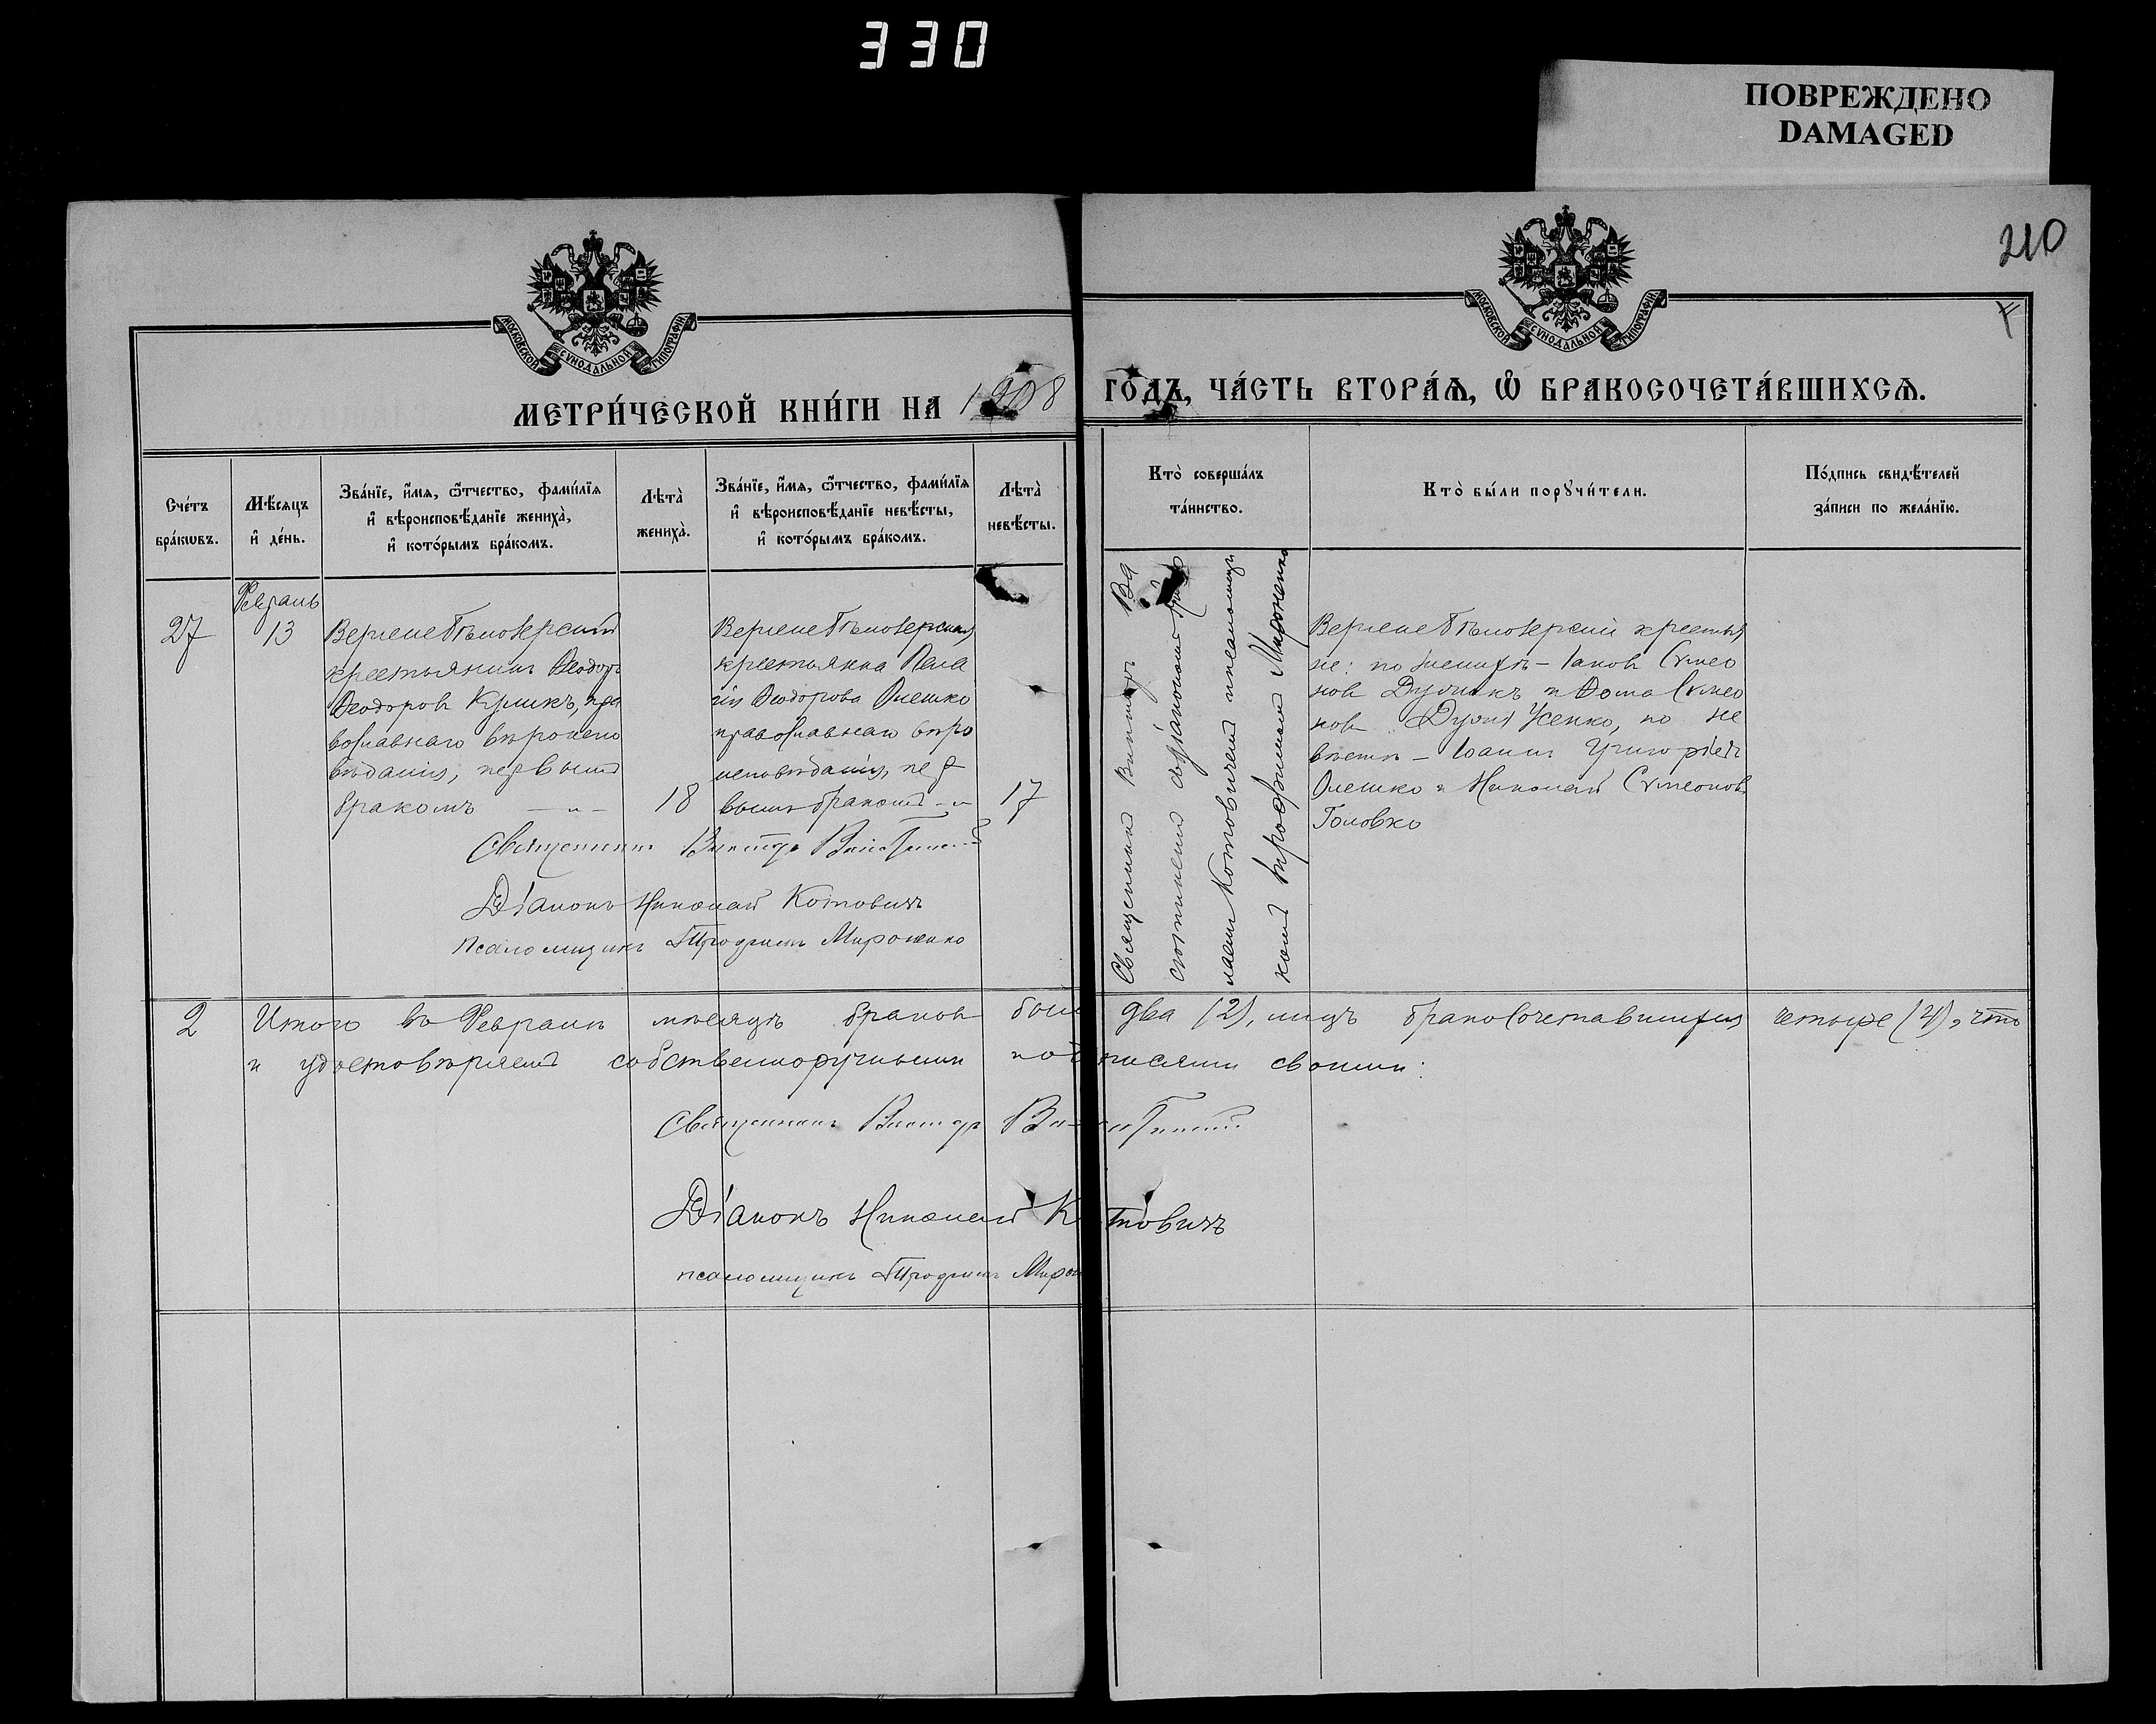 330
ПОВРЕЖДЕНО
DAMAGED
210
МОСКОВСКОЙ СѴНОДАЛЬНОЙ ТИПОГРАФІИ.
МОСКОВСКОЙ СѴНОДАЛЬНОЙ ТИПОГРАФІИ.
МЕТРИ́ЧЕСКОЙ КНИ́ГИ НА 1908 ГО́ДЪ, ЧА́СТЬ ВТОРА́Я, Ѽ БРАКОСОЧЕТА́ВШИХСЯ.
Сче́тъ
бра́кѡвъ.
Мѣ́сяцъ
и҆ де́нь.
Зва́нїе, и҆́мя, ѻ҆́тчество, фами́лїя
и҆ вѣроисповѣ́данїе жениха̀,
и҆ кото́рымъ бра́комъ.
Лѣта̀
жениха̀.
Зва́нїе, и҆́мя, ѻ҆́тчество, фами́лїя
и҆ вѣроисповѣ́данїе невѣ́сты,
и҆ кото́рымъ бра́комъ.
Лѣта̀
невѣ́сты.
Кто̀ соверша́лъ
та́инство.
Кто̀ бы́ли порꙋчи́тели.
По́дпись свидѣ́телей
за́писи по жела́нїю.
27
Февраль
13
Верхнебѣлозерскій
крестьянинъ Ѳеодоръ
Ѳеодоровъ Куликъ, пра
вославнаго вѣроиспо
вѣданія, первымъ
бракомъ — „ —
18
Верхнебѣлозерская
крестьянка Пела
гія Ѳеодорова Олешко
православнаго вѣро
исповѣданія, пер
вымъ бракомъ — „
17
Священникъ Викторъ
стотинскій съ діакономъ
лаемъ Котовичемъ и псаломщи
комъ Трофимомъ Мироненко
Верхнебѣлозерскіе крестья
не: по женихѣ — Іаковъ Сѵмео
новъ и Ѳома Сѵмео
новъ Усенко, по не
вѣстѣ — Іоаннъ Григоріевъ
Олешко и Николай Сѵмеоновъ
Головко
Священникъ Викторъ
Діаконъ Николай Котовичъ
Псаломщикъ Трофимъ Мироненко
2 Итого въ Февралѣ мѣсяцѣ браковъ было два (2), лицъ бракосочетавшихся четыре (4), что
и удостовѣряемъ собственноручными подписями своими:
Священникъ Викторъ
Діаконъ Николай Котовичъ
псаломщикъ Трофимъ Мирон